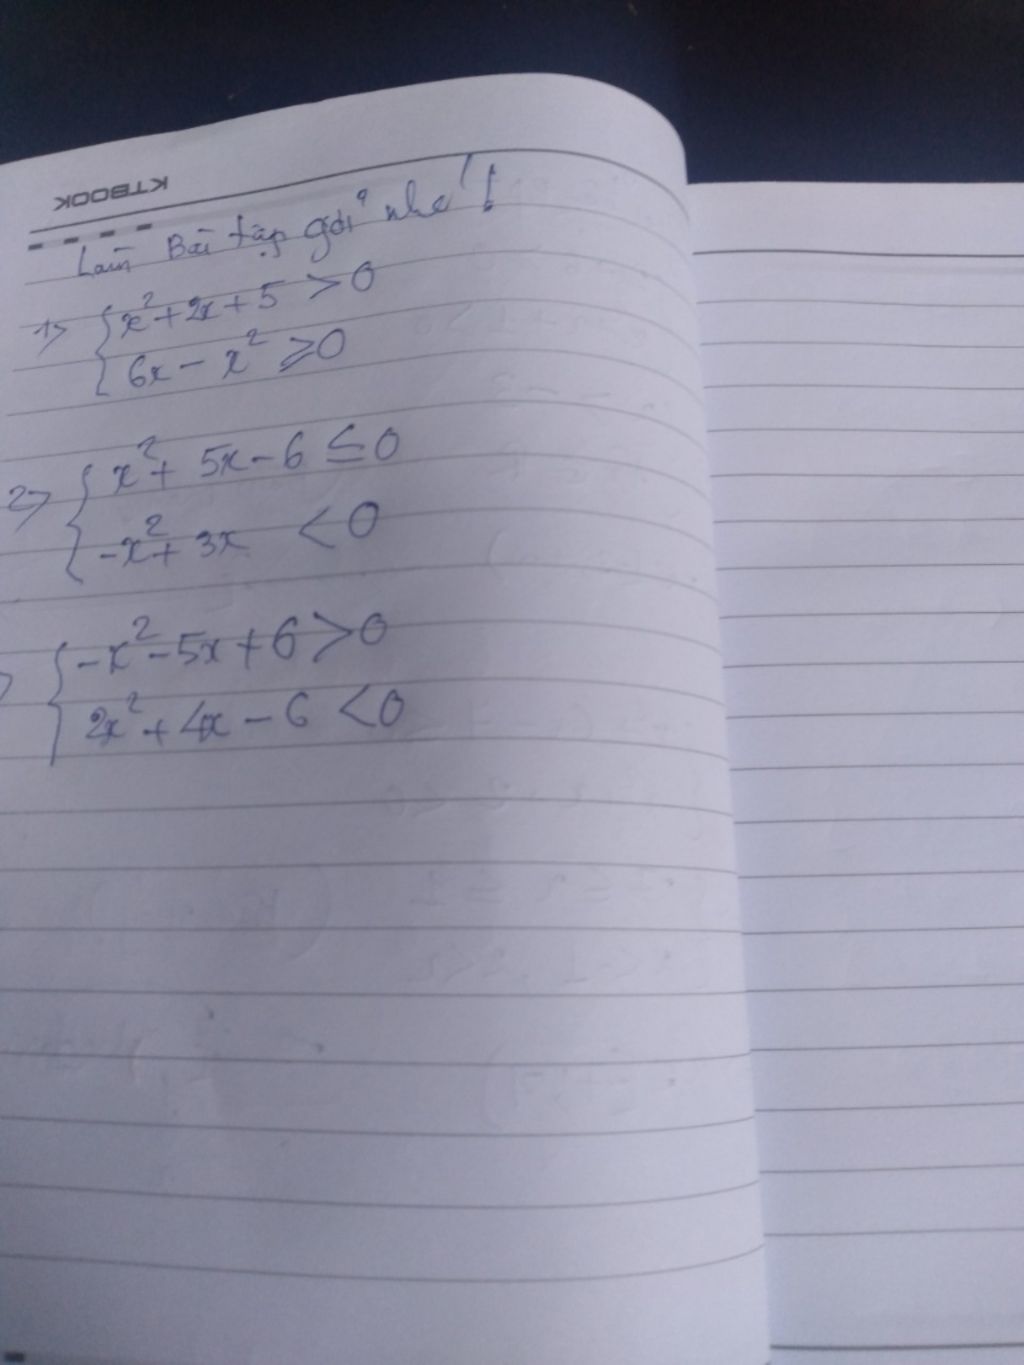 KTBOOK
Làm Bài tập gởi nhé!
1> { x²+2x+5 >0
6x - x² ≥0
2> { x²+ 5x-6 ≤0
-x²+ 3x <0
{ -x²-5x+6>0
2x²+4x-6 <0